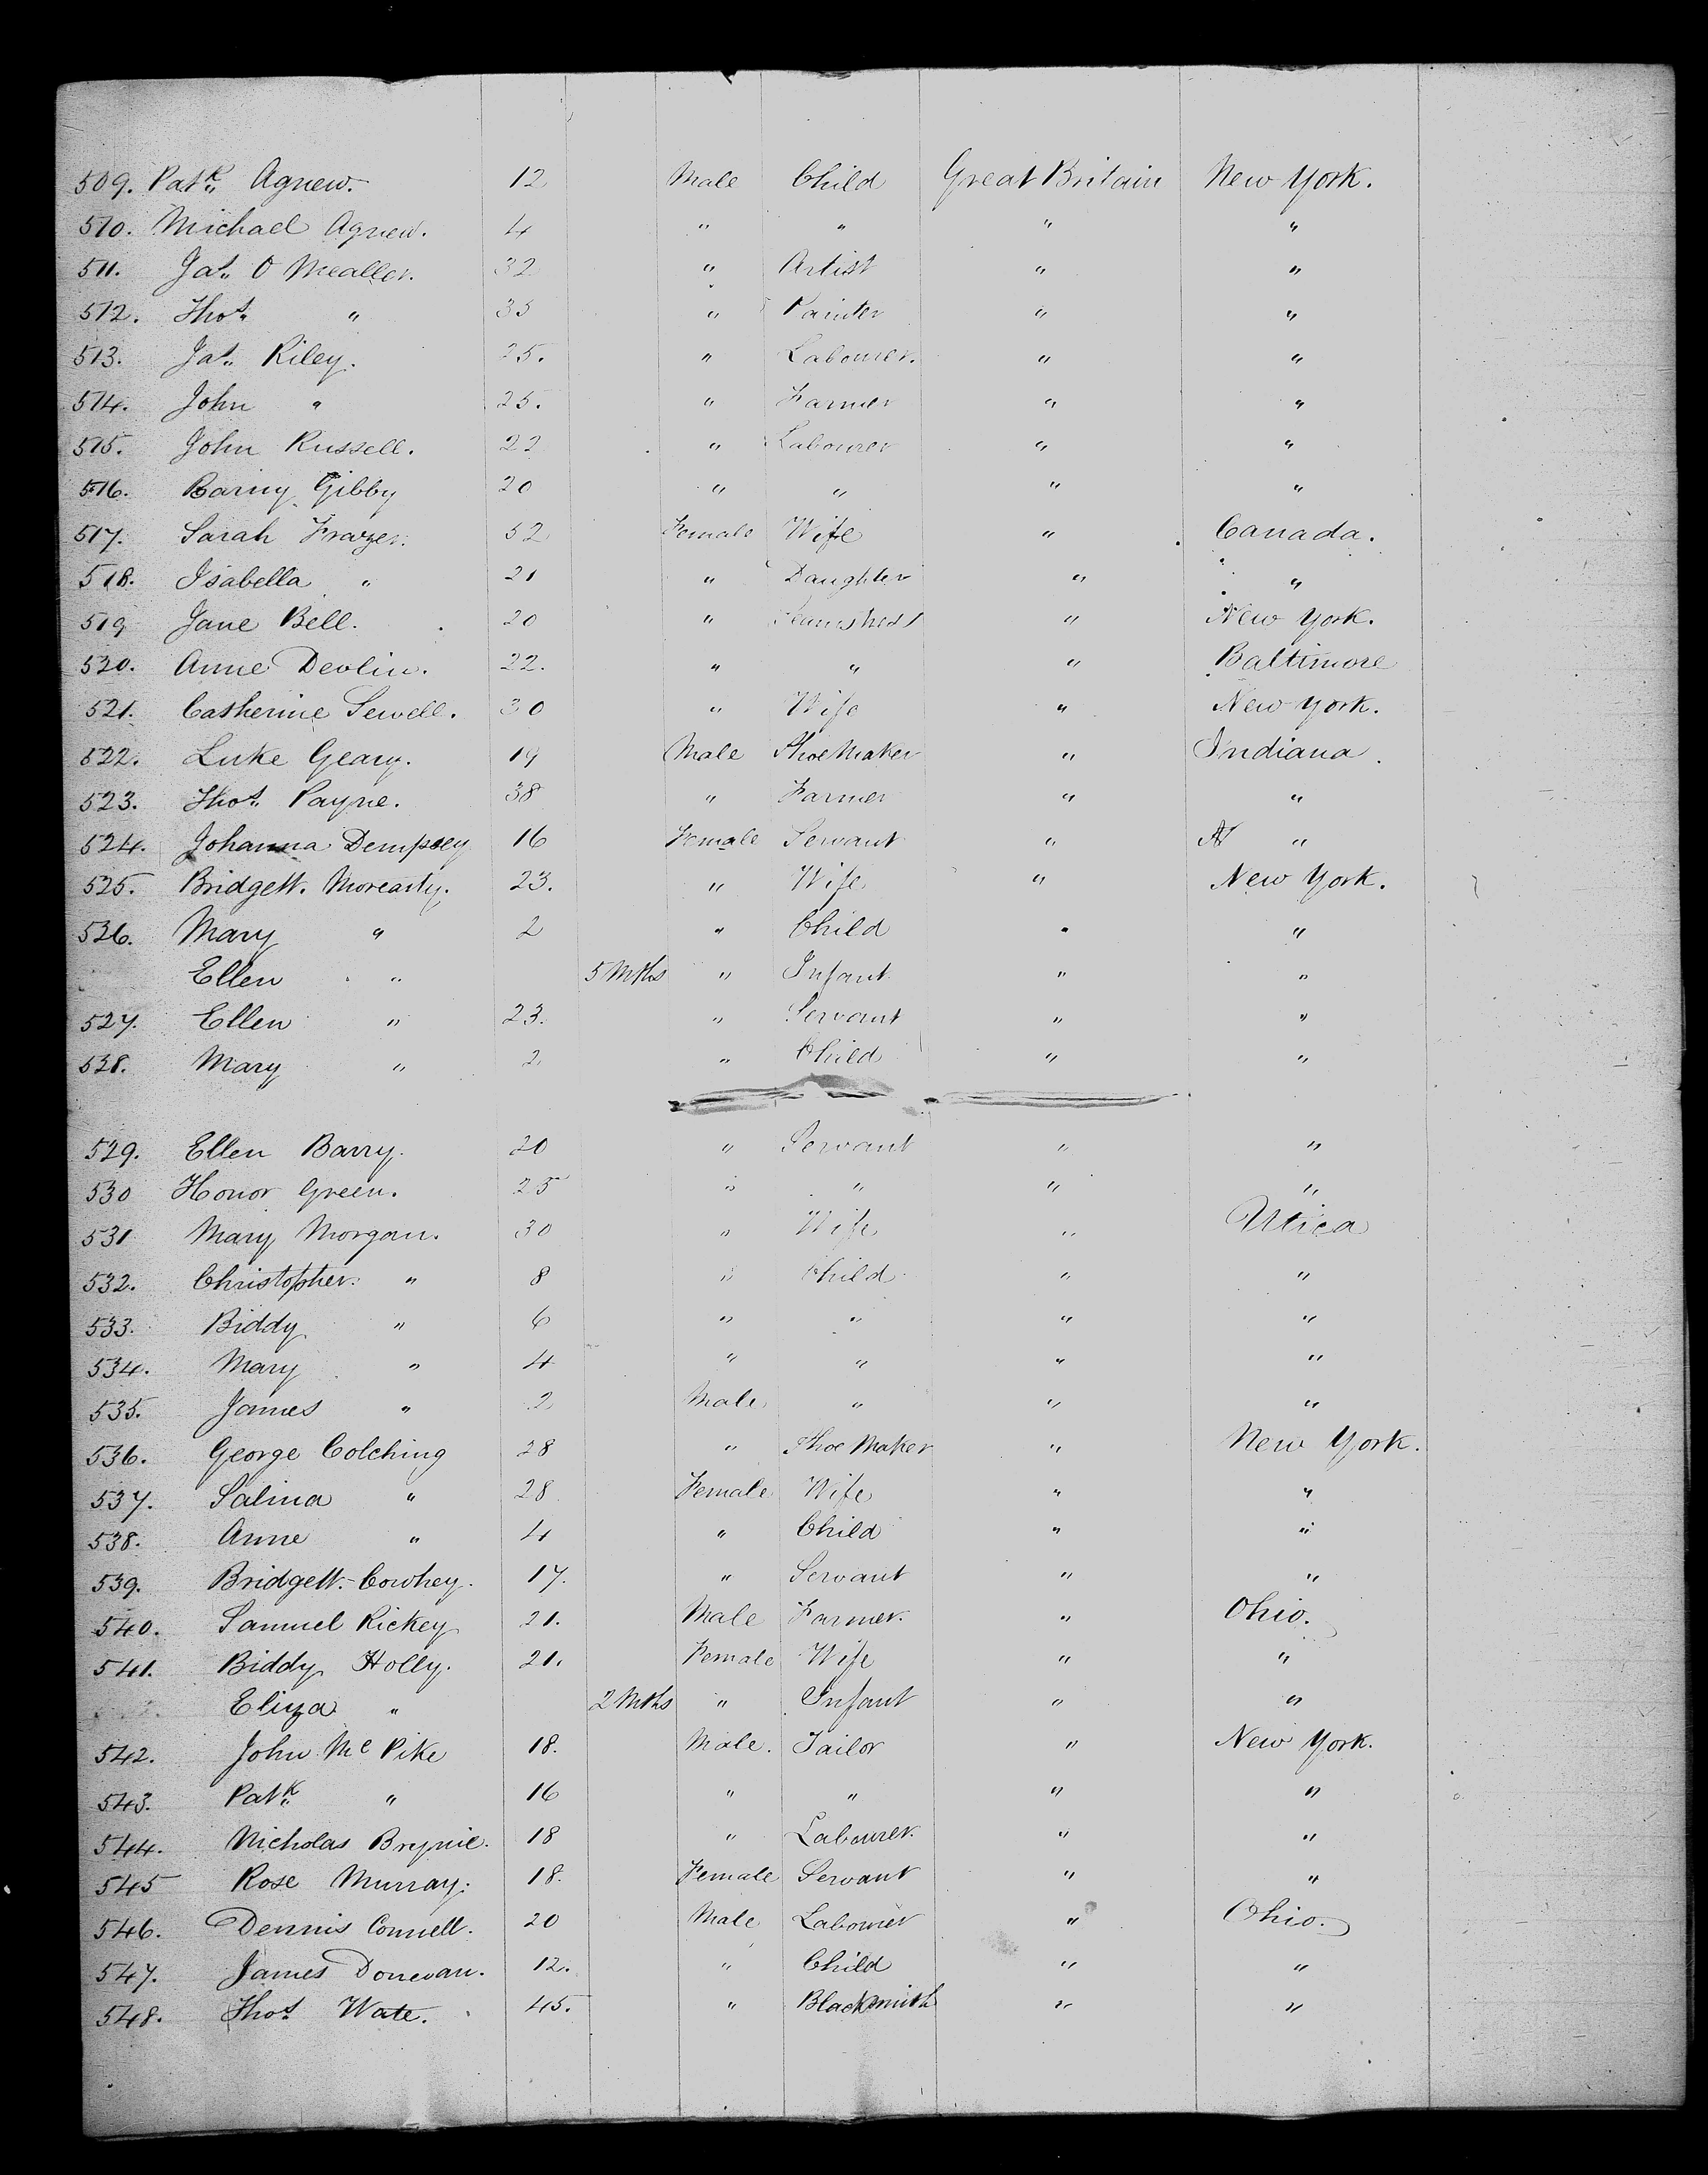 509. Patk. Agnew. 12 Male Child Great Britain New York.
510. Michael Agnew. 4 " " " "
511. Jas. O Mealler. 32 " Artist " "
512. Thos. " 35 " Painter " "
513. Jas. Riley. 25. " Labourer. " "
514. John " 25. " Farmer " "
515. John Russell. 22 " Labourer " "
516. Barny Gibby 20 " " " "
517. Sarah Frazer. 52 Female Wife " Canada.
518. Isabella " 21 " Daughter " "
519 Jane Bell. 20 " Seamstress " New York.
520. Anne Devlin. 22. " " " Baltimore
521. Catherine Sewell. 30 " Wife " New York.
522. Luke Geary. 19 Male Shoe Maker " Indiana.
523. Thos. Payne. 38 " Farmer " "
524. Johanna Dempsey 16 Female Servant " N "
525. Bridgett. Morearty. 23. " Wife " New York.
526. Mary " 2 " Child " "
Ellen " 5 Mths " Infant " "
527. Ellen " 23. " Servant " "
528. Mary " 2 " Child " "
529. Ellen Barry. 20 " Servant " "
530 Honor Green. 25 " " " "
531 Mary Morgan. 30 " Wife " Utica
532. Christopher. " 8 " Child " "
533. Biddy " 6 " " " "
534. Mary " 4 " " " "
535. James " 2 Male " " "
536. George Colching 28 " Shoe Maker " New York.
537. Salina " 28 Female Wife " "
538. Anne " 4 " Child " "
539. Bridgett. Cowhey. 17. " Servant " "
540. Samuel Rickey 21. Male Farmer. " Ohio.
541. Biddy Holly. 21. Female Wife " "
Eliza " 2 Mths " Infant " "
542. John Mc Pike 18. Male. Tailor " New York.
543. Patk. " 16 " " " "
544. Nicholas Brynie. 18 " Labourer. " "
545 Rose Murray. 18. Female Servant " "
546. Dennis Connell. 20 Male Labourer " Ohio.
547. James Donevan. 12. " Child " "
548. Thos Wate. 45. " Blacksmith " "